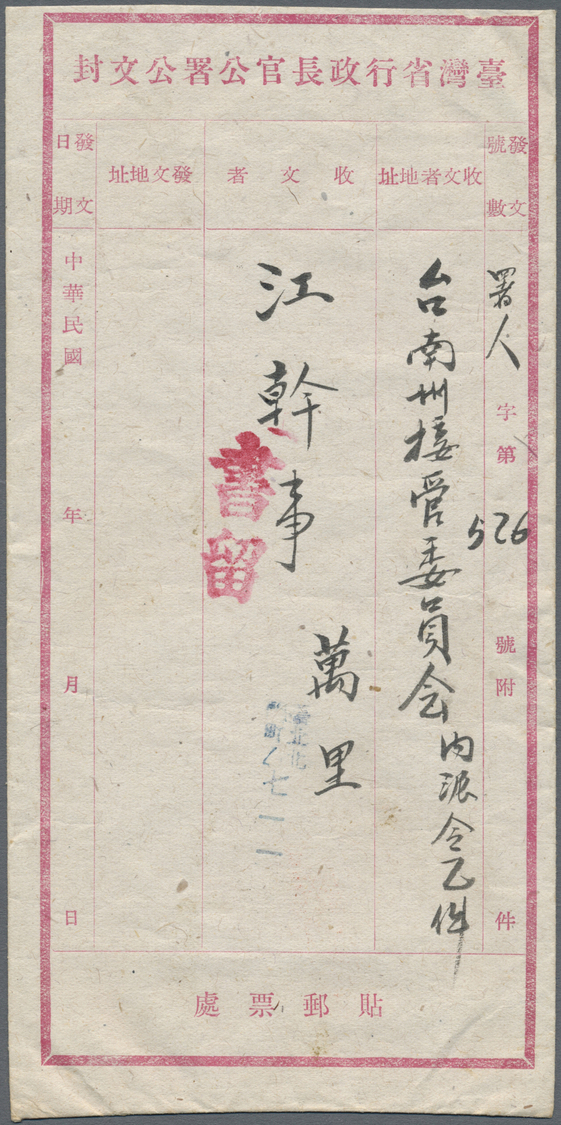 臺灣省行政長官公署公文封
發文號數
署人字第576號附件
收文者地址
台南州接管委員会
內派令乙件
收文者
江幹事萬里
書留
發文地址
發文日期
中華民國年月日
貼郵票處